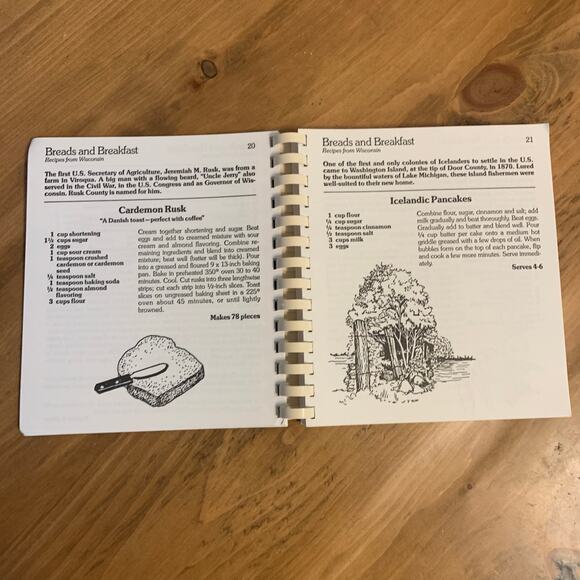 Breads and Breakfast 20
Recipes from Wisconsin
The first U.S. Secretary of Agriculture, Jeremiah M. Rusk, was from a
farm in Viroqua. A big man with a flowing beard, "Uncle Jerry" also
served in the Civil War, in the U.S. Congress and as Governor of Wis-
consin. Rusk County is named for him.
Cardemon Rusk
"A Danish toast—perfect with coffee"
1 cup shortening
1½ cups sugar
2 eggs
1 cup sour cream
1 teaspoon crushed
cardemon or cardemon
seed
teaspoon salt
1 teaspoon baking soda
½ teaspoon almond
flavoring
3 cups flour
Cream together shortening and sugar. Beat
eggs and add to creamed mixture with sour
cream and almond flavoring. Combine re-
maining ingredients and blend into creamed
mixture; beat well (batter will be thick). Pour
into a greased and floured 9 x 13-inch baking
pan. Bake in preheated 350° oven 30 to 40
minutes. Cool. Cut rusks into three lengthwise
strips; cut each strip into ½-inch slices. Toast
slices on ungreased baking sheet in a 225°
oven about 45 minutes, or until lightly
browned.
Makes 78 pieces
Breads and Breakfast 21
Recipes from Wisconsin
One of the first and only colonies of Icelanders to settle in the U.S.
came to Washington Island, at the tip of Door County, in 1870. Lured
by the bountiful waters of Lake Michigan, these island fishermen were
well-suited to their new home.
Icelandic Pancakes
1 cup flour
cup sugar
teaspoon cinnamon
teaspoon salt
3 cups milk
3 eggs
Combine flour, sugar, cinnamon and salt; add
milk gradually and beat thoroughly. Beat eggs.
Gradually add to batter and blend well. Pour
¼ cup batter per cake onto a medium hot
griddle greased with a few drops of oil. When
bubbles form on the top of each pancake, flip
and cook a few more minutes. Serve immedi-
ately.
Serves 4-6